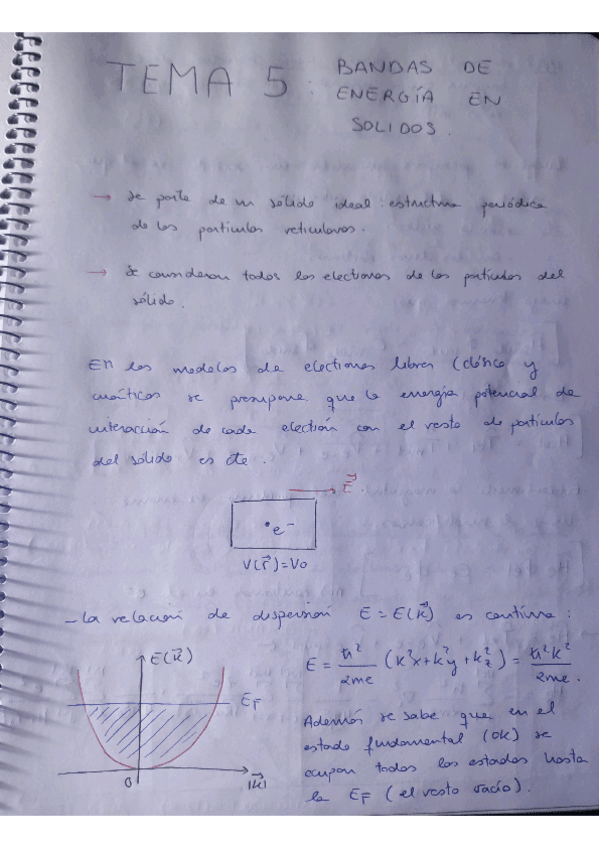 TEMA 5: BANDAS DE
ENERGÍA EN
SOLIDOS.
→ Se parte de un sólido ideal: estructura periódica
de las partículas reticulares.
→ Se consideran todos los electrones de las partículas del
sólido.
En los modelos de electrones libres (clásico y
cuánticos se presupone que la energía potencial de
interacción de cada electrón con el resto de partículas
del sólido es cte.
E⃗.
e⁻
V(r⃗)=V₀
- La relación de dispersión E = E(k⃗) es continua:
E(k⃗)
E_F
0
|k⃗|
E = ħ²/2me (k²x + k²y + k²z) = ħ²k²/2me.
Además se sabe que en el
estado fundamental (0K) se
ocupan todos los estados hasta
la E_F (el resto vacío).